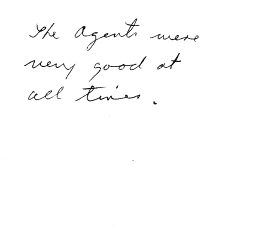 The Agents were
very good at
all times.